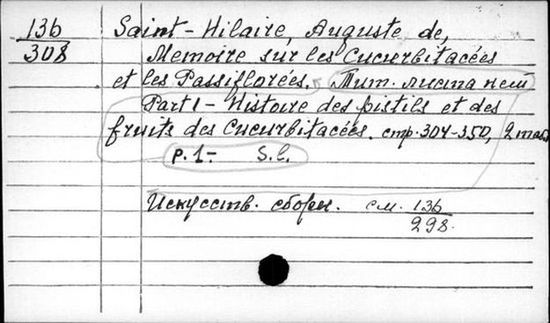 136
308
Saint-Hilaire, Auguste de,
Memoire sur les Cucurbitacées
et les Passiflorées. Тит. листа нет
Part 1 - Histoire des pistils et des
fruits des Cucurbitacées. стр. 304-350, 2 табл
p. 1- S. l.
Искусств. сборн. см. 136
298.